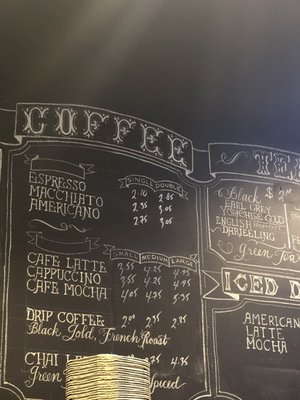 COFFEE
SINGLE DOUBLE
ESPRESSO 2.10 2.85
MACCHIATO 2.35 3.05
AMERICANO 2.75 3.05
SMALL MEDIUM LARGE
CAFE LATTE 3.55 4.25 4.75
CAPPUCCINO 3.55 4.25 4.75
CAFE MOCHA 4.05 4.75 5.75
DRIP COFFEE 2.00 2.35 2.85
Black Gold, French Roast
CHAI 4.75
Green Spiced
TE
Black $2
EARL GREY
YORKSHIRE GOLD
ENGLISH
DARJEELING
Green Tea
ICED D
AMERICAN
LATTE
MOCHA